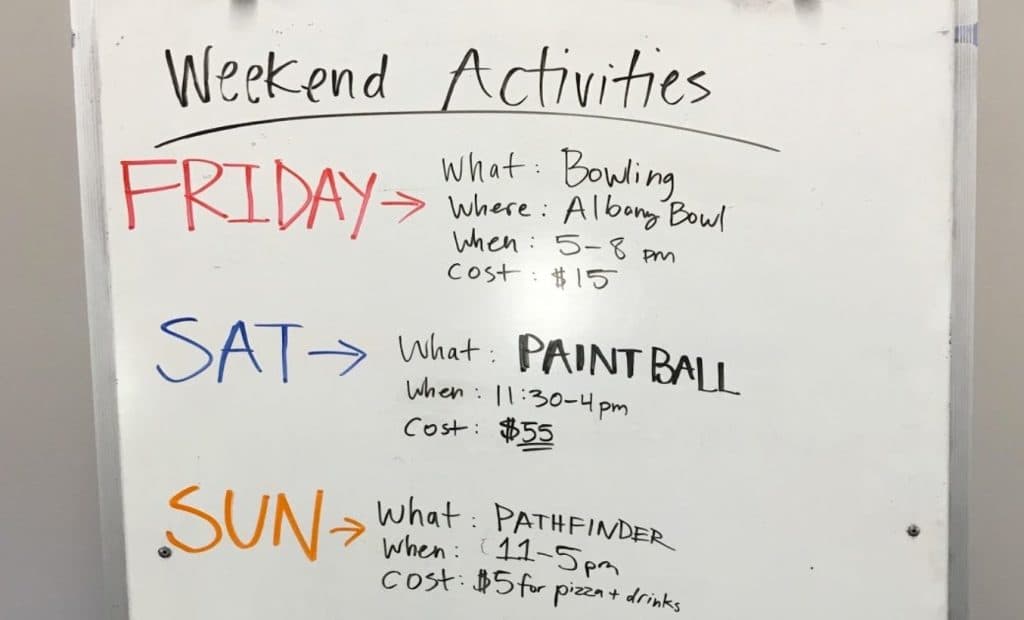 Weekend Activities
FRIDAY → What: Bowling
Where: Albany Bowl
When: 5-8 pm
Cost: $15
SAT → What: PAINTBALL
When: 11:30-4pm
Cost: $55
SUN → What: PATHFINDER
When: 11-5pm
Cost: $5 for pizza + drinks